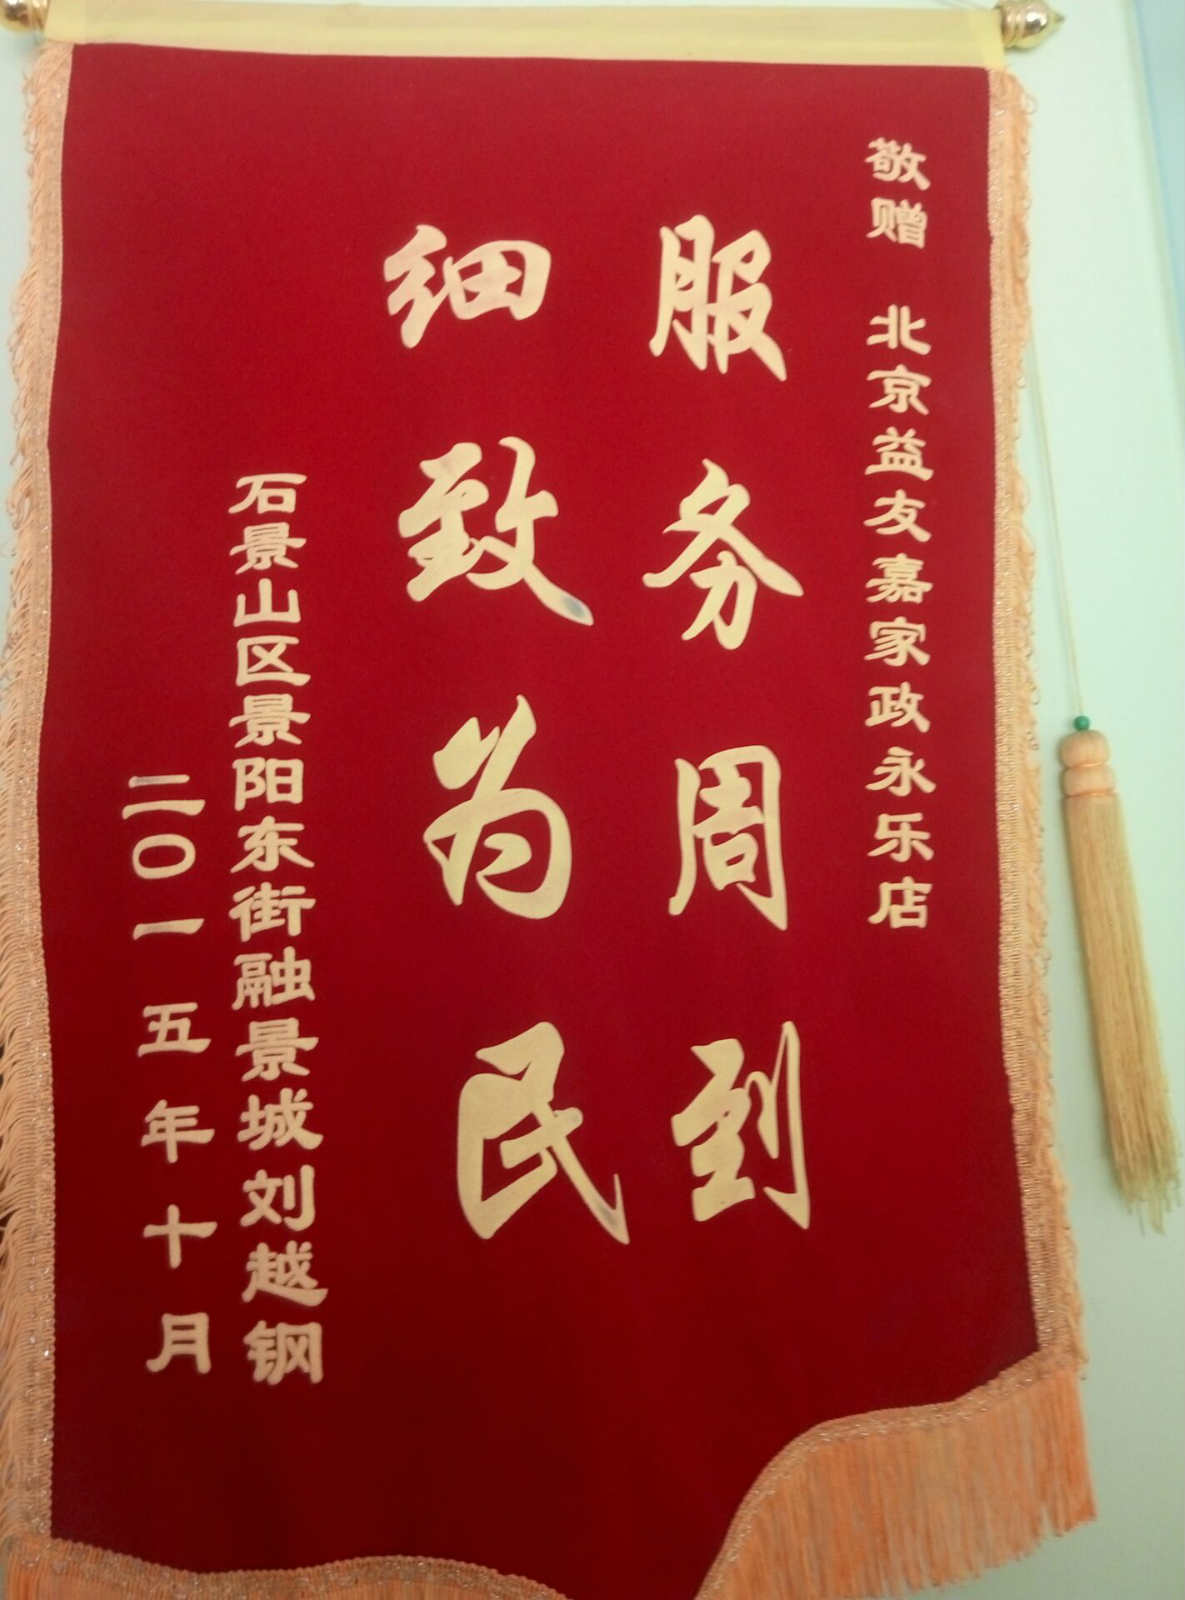 敬赠 北京益友嘉家政永乐店
服务周到
细致为民
石景山区景阳东街融景城刘越钢
二〇一五年十月